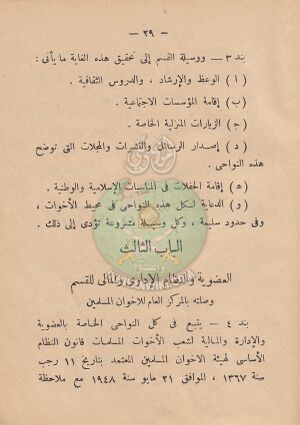 — ٢٩ —
بند ٣ — ووسيلة القسم إلى تحقيق هذه الغاية ما يأتى :
( ا ) الوعظ والإرشاد ، والدروس الثقافية .
(ب) إقامة المؤسسات الاجتماعية .
(ج) الزيارات المنزلية الخاصة .
( د ) إصدار الرسائل والنشرات والمجلات التى توضح
هذه النواحى .
(ه) إقامة الحفلات فى المناسبات الإسلامية والوطنية .
( و ) الدعاية لكل هذه النواحى فى محيط الأخوات ،
وفى حدود سليمة ، وكل وسيلة مشروعة تؤدى إلى ذلك .
الباب الثالث
العضوية والنظام الإدارى والمالى للقسم
وصلته بالمركز العام للاخوان المسلمين
بند ٤ — يتبع فى كل النواحى الخاصة بالعضوية
والإدارة والمالية لشعب الأخوات المسلمات قانون النظام
الأساسى لهيئة الاخوان المسلمين المعتمد بتاريخ ١١ رجب
سنة ١٣٦٧ ، الموافق ٢١ مايو سنة ١٩٤٨ مع ملاحظة